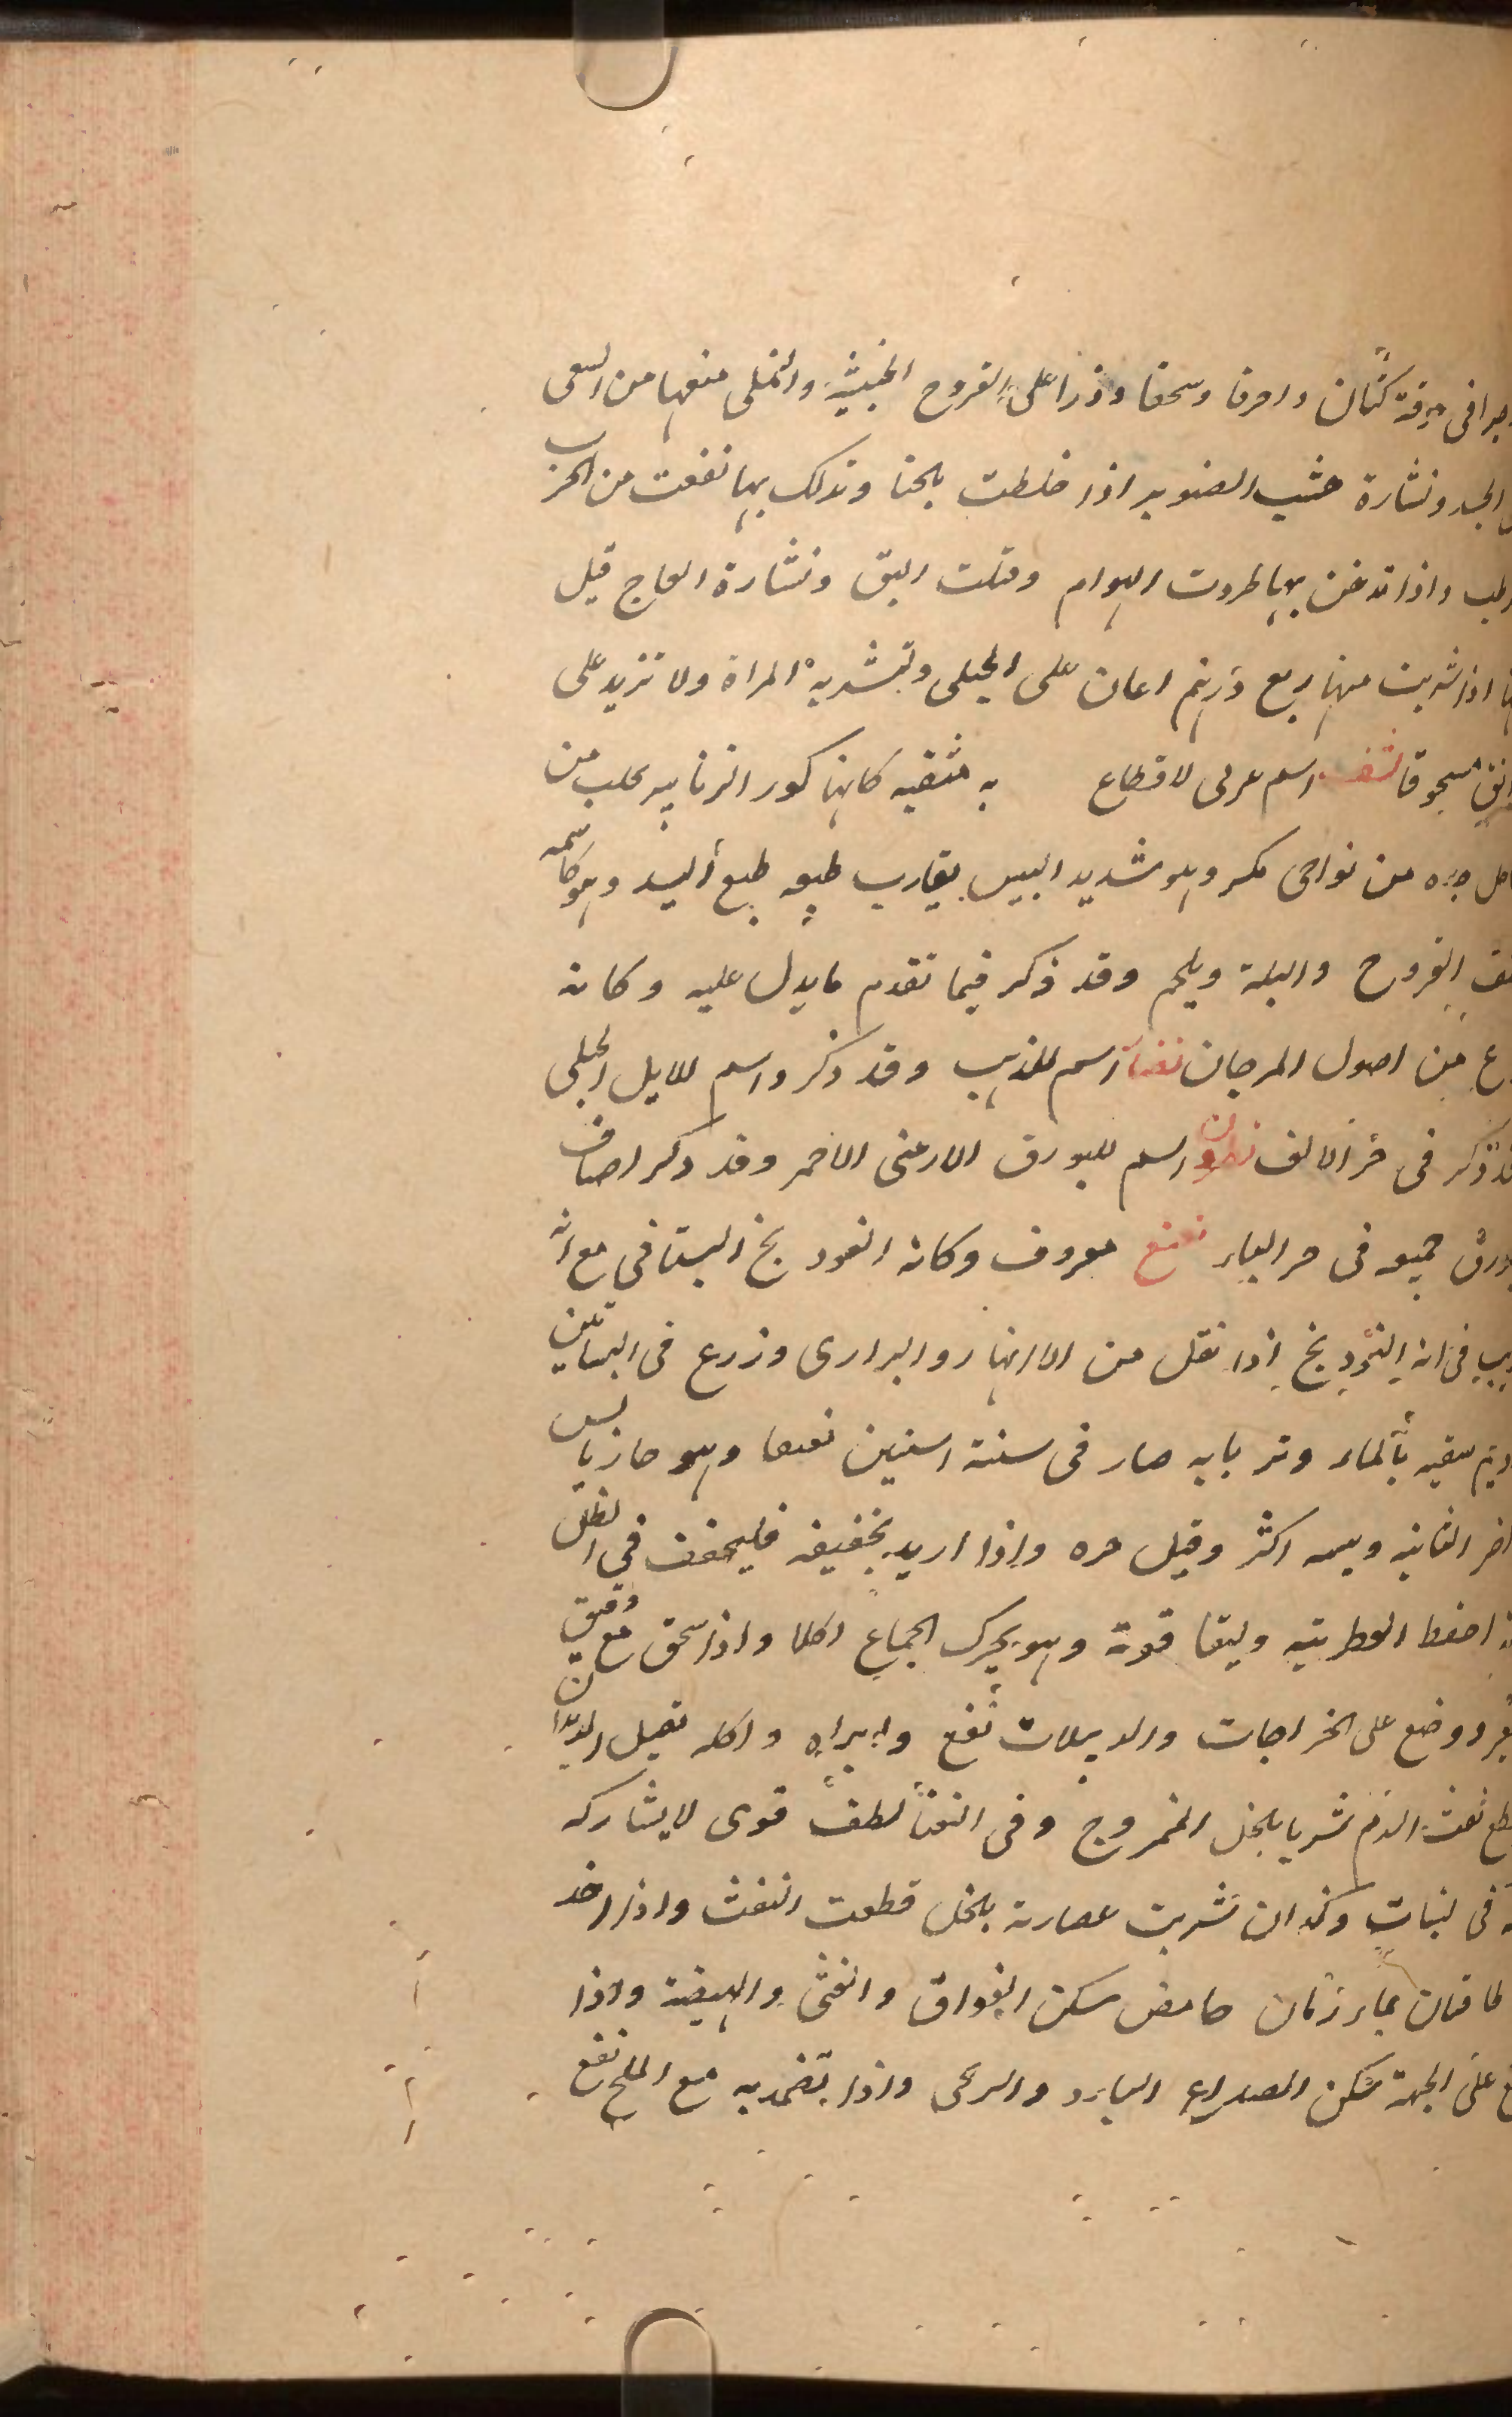 صرا فى خرقة كتان واحرقا وسحقا وذرا على القروح الخبيثة والنملى منعها من السعى
الجسد ونشارة خشب الصنوبر اذا خلطت بالحنا وتدلك بها نفعت من الجرب
الرطب واذا تدخن بها طردت الهوام وقتلت البق ونشارة العاج قيل
انها اذا شربت منها ربع درهم اعان على الحبلى وتبشر به المراة ولا تزيد على
دانق مسحوقا نشف اسم عربى لاقطاع به مثقبه كانها كور الزنابير يجلب من
ساحل جده من نواحى مكه وهو شديد اليبس يقارب طبعه طبع السد وهو كاسمه
القروح والبلة ويلحم وقد ذكر فيما تقدم ما يدل عليه وكانه
نوع من اصول المرجان اسم للذهب وقد ذكر واسم للايل الجبلى
وقد ذكر فى حر الالف نطرون اسم للبورق الارمنى الاحمر وقد ذكر اصناف
البورق جميعه فى حر الباء نعنع معروف وكانه الفودنج البستانى مع انه
فى انه الفودنج اذا نقل من الانهار والبرارى وزرع فى البساتين
واديم سقيه بالماء وتربا به صار فى سنة اسنين نعنعا وهو حار يابس
اخر الثانيه ويبسه اكثر وقيل حره واذا اريد تخفيفه فليجفف فى الظل
احفظ العطريته ويبقا قوته وهو يحرك الجماع اكلا واذا سحق مع دقيق
ووضع على الخراجات والدبيلات نفع وابراه واكله يقتل الديدان
ويقطع نفث الدم شربا بالخل الممزوج وفى النعنا لطف قوى لا يشاركه
فى لنبات وكذا ان شربت عصارته بالخل قطعت النفث واذا اخذ
طاقتان بماء رمان حامض سكن الفواق والغثى والهيضة واذا
وضع على الجبهة سكن الصداع البارد والريحى واذا تضمد به مع الملح نفع